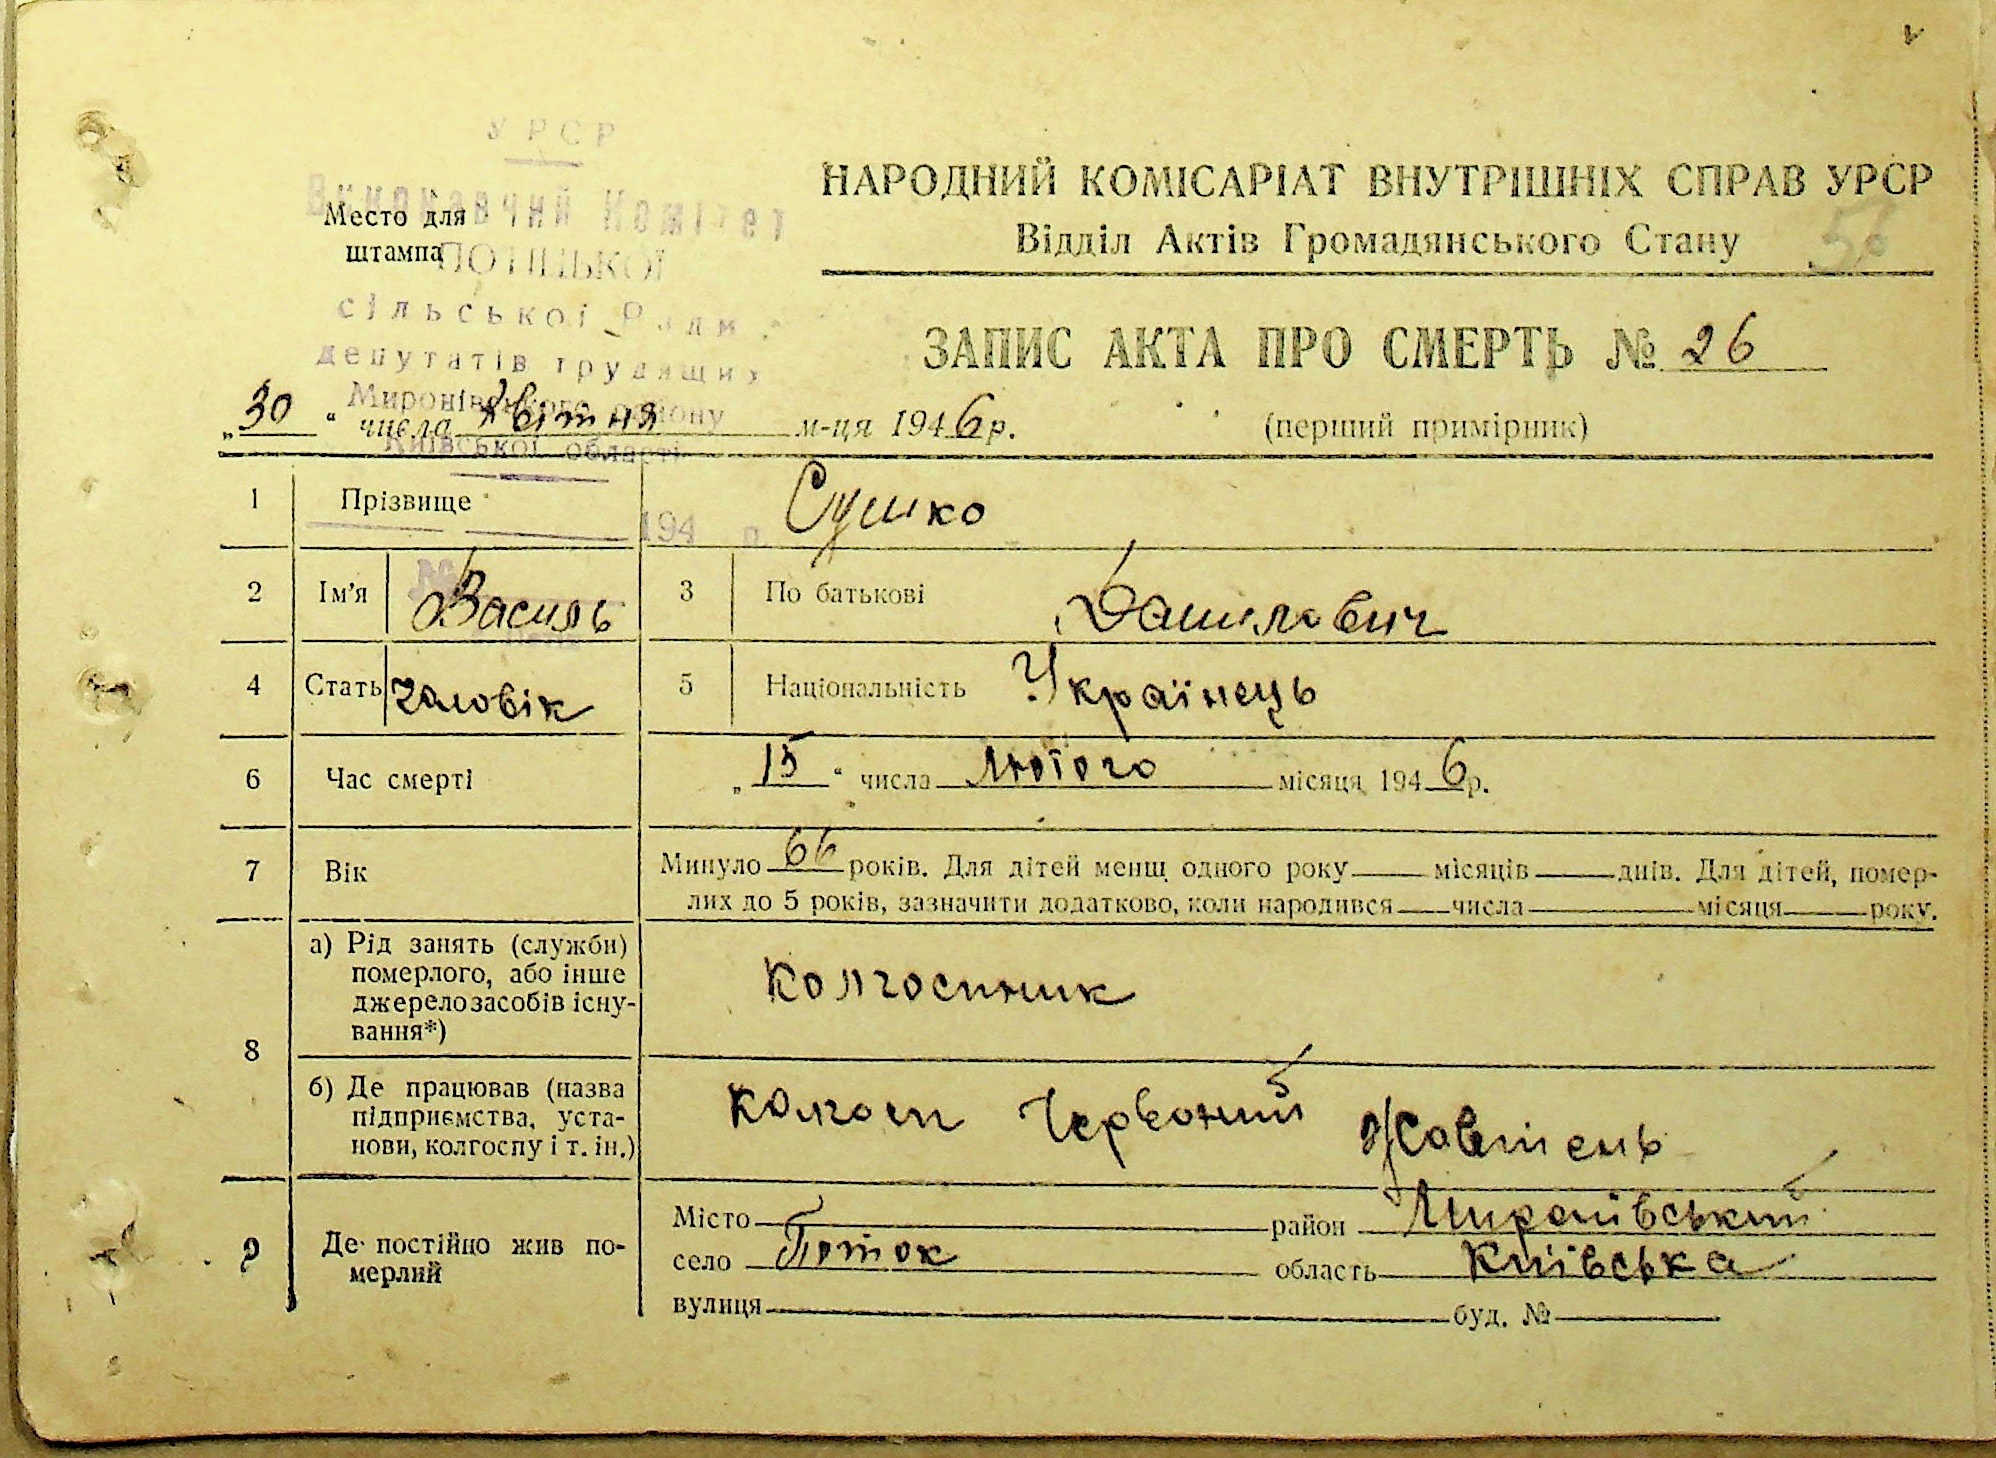 УРСР
Виконавчий Комітет
Место для
штампа
ПОТІЦЬКОЇ
сільської Ради
депутатів трудящих
Миронівського району
Київської області
194 р.
№
НАРОДНИЙ КОМІСАРІАТ ВНУТРІШНІХ СПРАВ УРСР
Відділ Актів Громадянського Стану
56
ЗАПИС АКТА ПРО СМЕРТЬ № 26
„30“ числа квітня м-ця 1946 р.
(перший примірник)
1 Прізвище Сушко
2 Ім'я Василь 3 По батькові Данилович
4 Стать чаловік 5 Національність Українець
6 Час смерті „15“ числа Лютого місяця 1946 р.
7 Вік Минуло 66 років. Для дітей менш одного року місяців днів. Для дітей, помер-
лих до 5 років, зазначити додатково, коли народився числа місяця року.
8 а) Рід занять (служби)
померлого, або інше
джерело засобів існу-
вання*)
Колгоспник
б) Де працював (назва
підприємства, уста-
нови, колгоспу і т. ін.)
колгосп Червоний Жовтень
9 Де постійно жив по-
мерлий
Місто район Миронівський
село Поток область Київська
вулиця буд. №